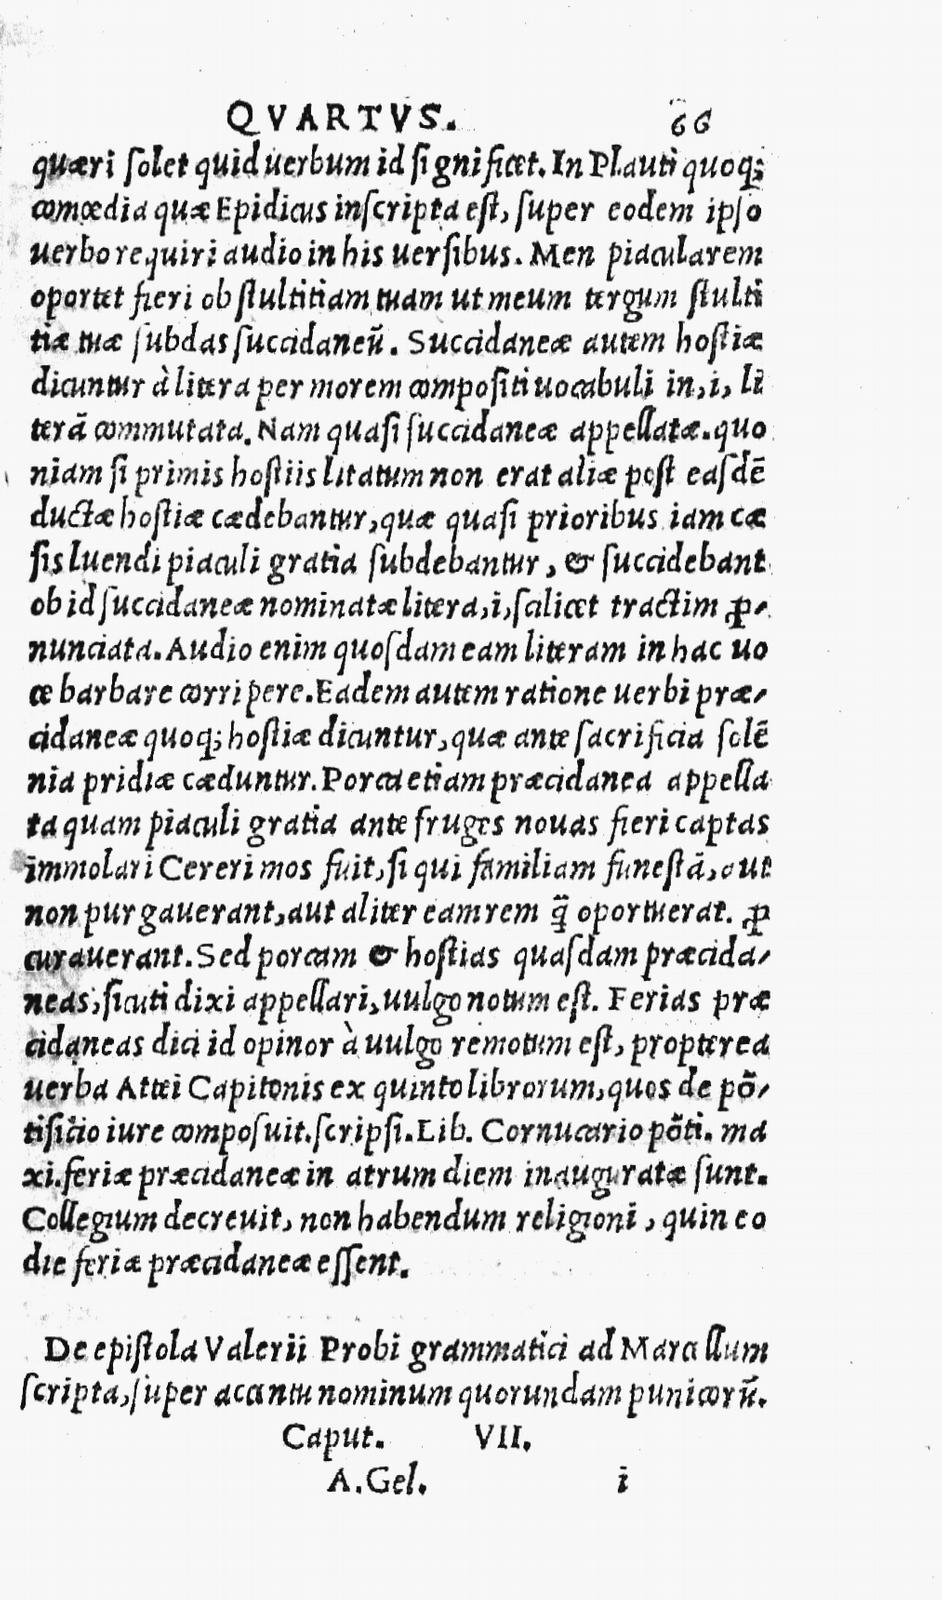 QVARTVS. 66
quæri ſolet quid uerbum id ſignificet. In Plauti quoq;
comœdia quæ Epidicus inſcripta eſt, ſuper eodem ipſo
uerbo requiri audio in his uerſibus. Men piacularem
oportet fieri ob ſtultitiam tuam ut meum tergum ſtulti
tiæ tuæ ſubdas ſuccidaneũ. Succidaneæ autem hoſtiæ
dicuntur à litera per morem compoſiti uocabuli in, i, li
terã commutata. Nam quaſi ſuccidaneæ appellatæ. quo
niam ſi primis hoſtiis litatum non erat aliæ poſt eaſdẽ
ductæ hoſtiæ cædebantur, quæ quaſi prioribus iam cæ
ſis luendi piaculi gratia ſubdebantur, & ſuccidebant
ob id ſuccidaneæ nominatæ litera, i, ſcilicet tractim ꝓ-
nunciata. Audio enim quoſdam eam literam in hac uo
ce barbare corripere. Eadem autem ratione uerbi præ-
cidaneæ quoq; hoſtiæ dicuntur, quæ ante ſacrificia ſolẽ
nia pridiæ cæduntur. Porca etiam præcidanea appella
ta quam piaculi gratia ante fruges nouas fieri captas
immolari Cereri mos fuit, ſi qui familiam funeſtã, aut
non purgauerant, aut aliter eam rem q̃ oportuerat. ꝓ
curauerant. Sed porcam & hoſtias quaſdam præcida-
neas, ſicuti dixi appellari, uulgo notum eſt. Ferias præ
cidaneas dici id opinor à uulgo remotum eſt, propterea
uerba Attei Capitonis ex quinto librorum, quos de põ-
tificio iure compoſuit. ſcripſi. Lib. Cornucario põti. ma
xi. feriæ præcidaneæ in atrum diem inauguratæ ſunt.
Collegium decreuit, non habendum religioni, quin eo
die feriæ præcidaneæ eſſent.
De epiſtola Valerii Probi grammatici ad Marcellum
ſcripta, ſuper accentu nominum quorundam punicorũ.
Caput. VII.
A. Gel. i